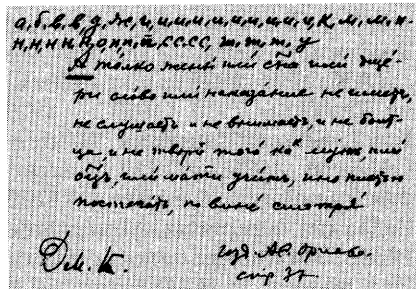 а, б, в, в, д, ж, и, и, и, и, и, и, и, и, ц, к, м, м, н
н, н, н, н, о, н, п, т, с, с, с, с, т, т, т, у
А толко жены или сна или дще-
ри слово или наказание не имет,
не слушаетъ и не внимаетъ, и не боит-
ца, и не творитъ того как мужъ, или
оцъ, или мати учитъ, ино плетью
постегать, по вине смотря
Дм. К.
изд. А.С. Орлова.
стр. 37